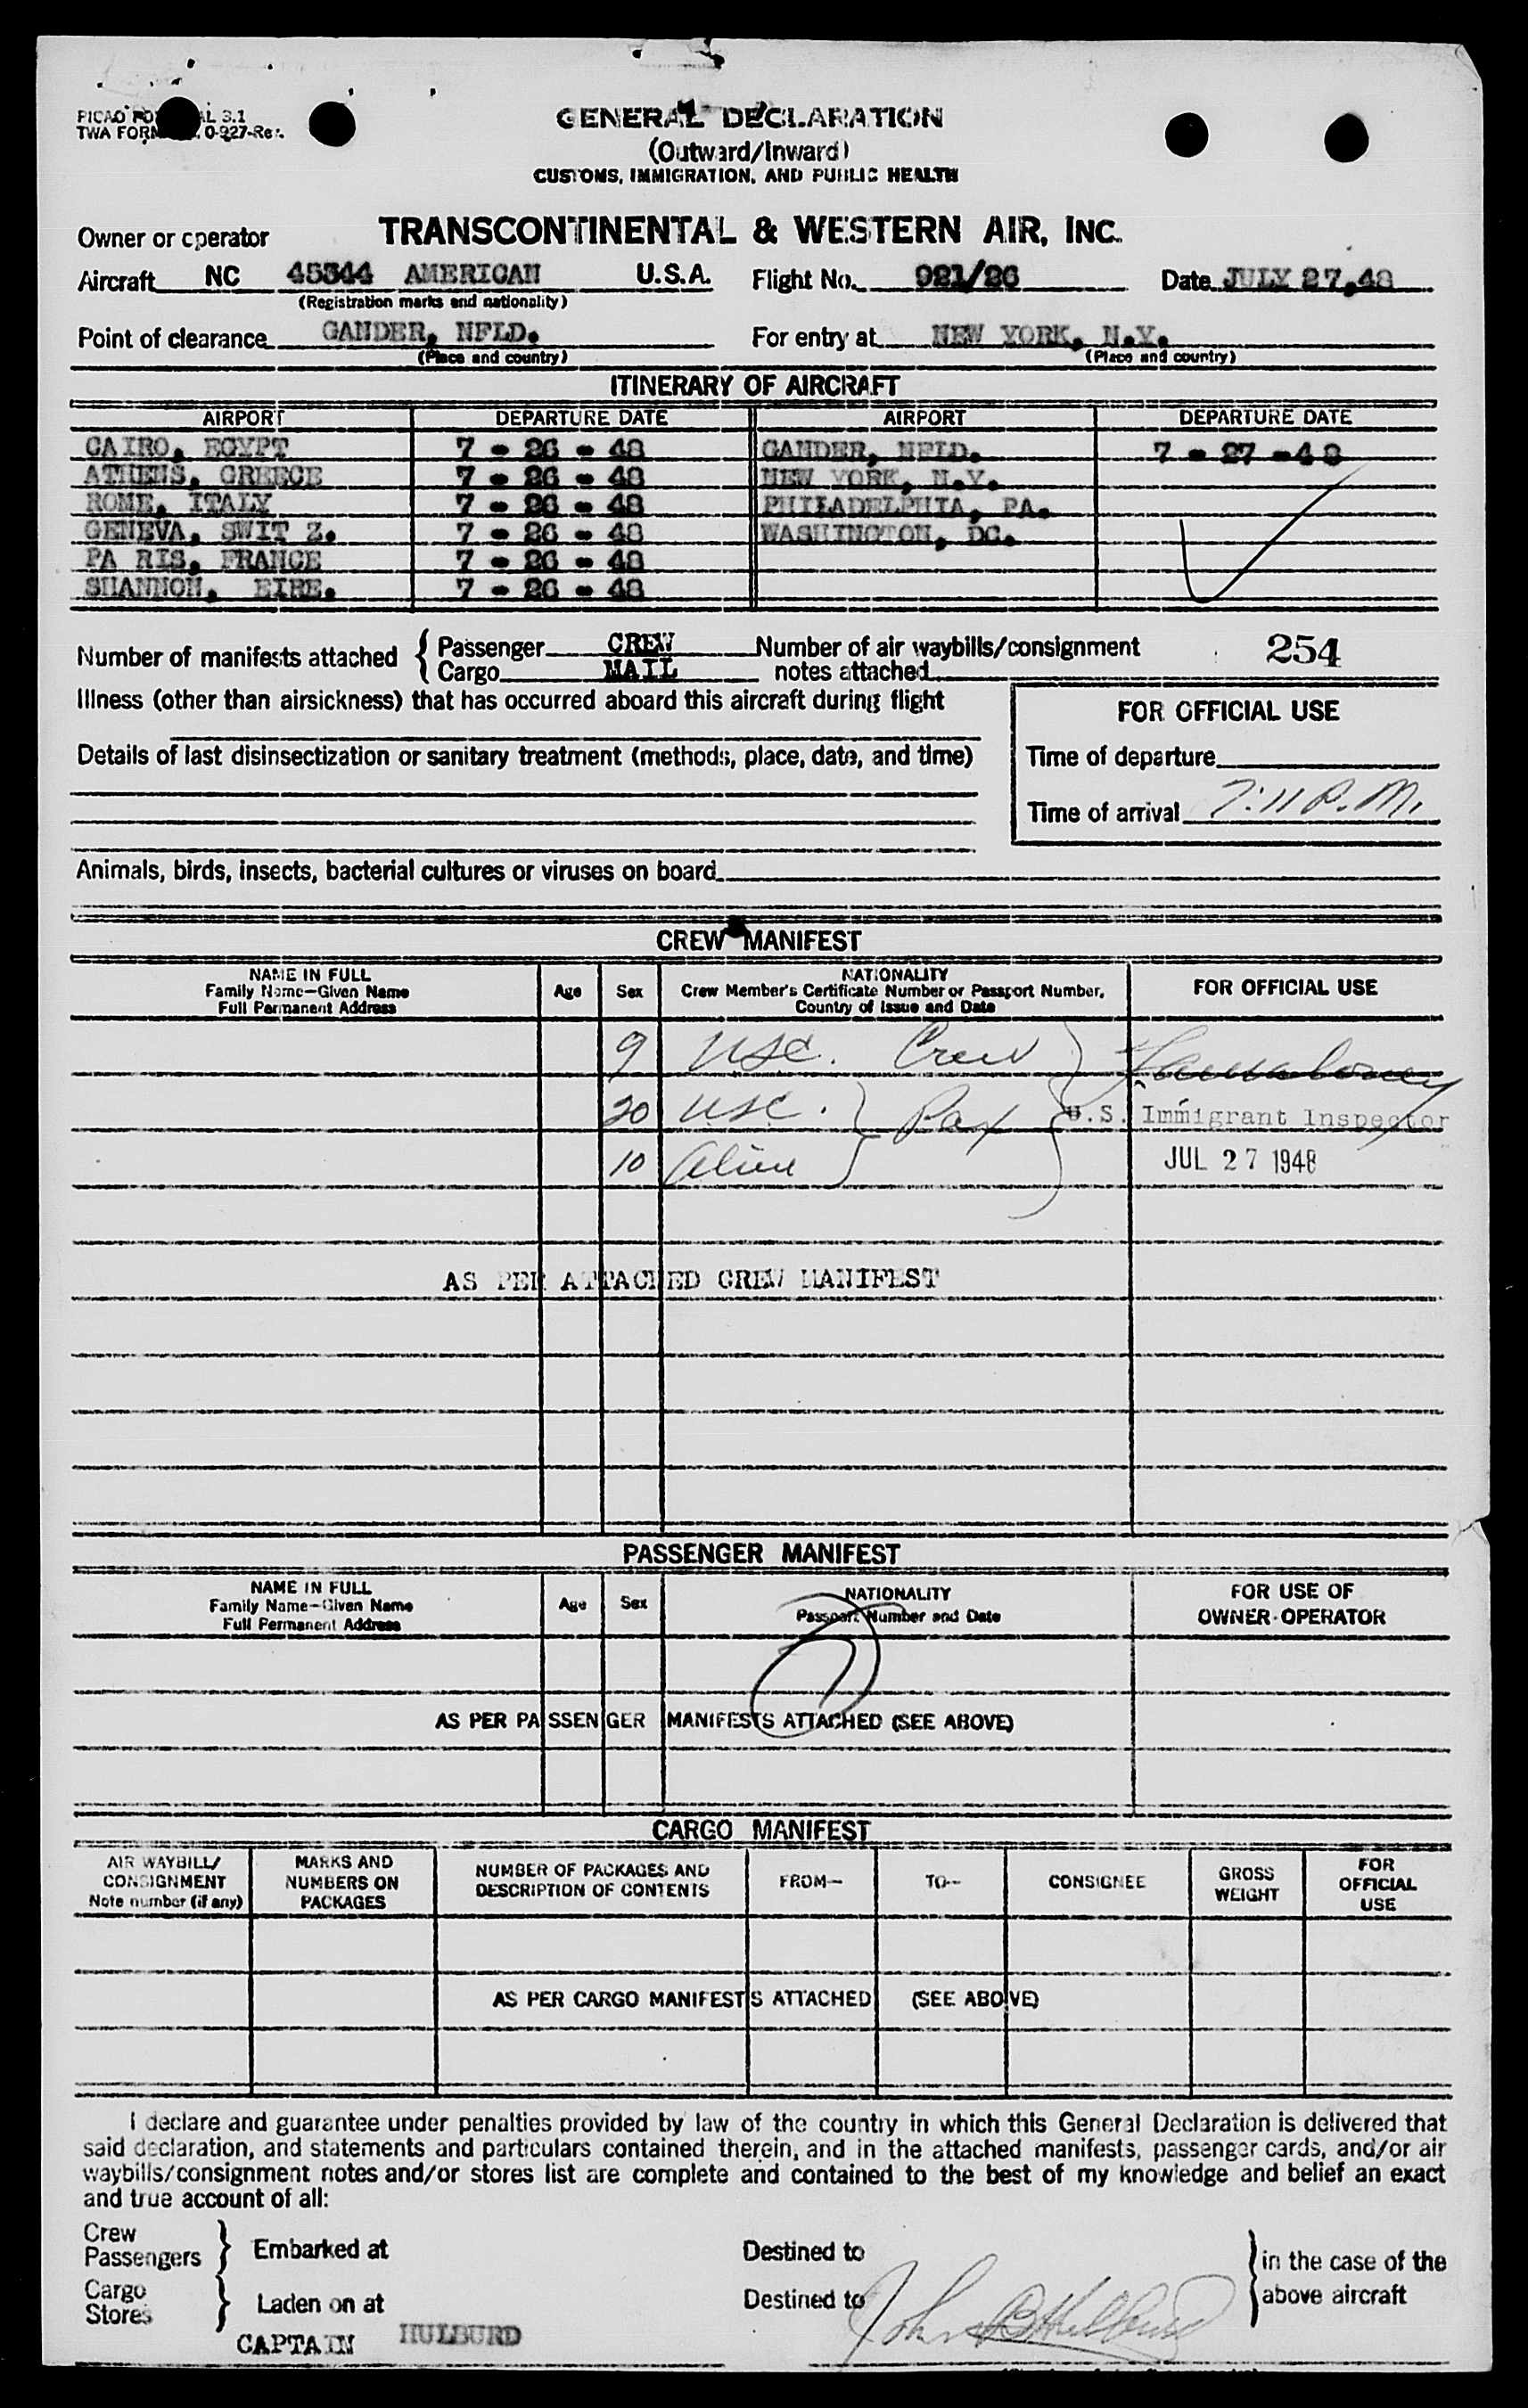 PICAO FO AL 3.1
TWA FORM 0-927-Rev.
GENERAL DECLARATION
(Outward/Inward)
CUSTOMS, IMMIGRATION, AND PUBLIC HEALTH
Owner or operator TRANSCONTINENTAL & WESTERN AIR, INC.
Aircraft NC 45344 AMERICAN U.S.A. Flight No. 921/26 Date JULY 27,48
(Registration marks and nationality)
Point of clearance GANDER, NFLD. For entry at NEW YORK, N.Y.
(Place and country) (Place and country)
ITINERARY OF AIRCRAFT
AIRPORT DEPARTURE DATE AIRPORT DEPARTURE DATE
CAIRO, EGYPT 7 - 26 - 48 GANDER, NFLD. 7 - 27 -48
ATHENS, GREECE 7 - 26 - 48 NEW YORK, N.Y.
ROME, ITALY 7 - 26 - 48 PHILADELPHIA, PA.
GENEVA, SWIT Z. 7 - 26 - 48 WASHINGTON, DC.
PA RIS, FRANCE 7 - 26 - 48
SHANNON, EIRE. 7 - 26 - 48
Number of manifests attached { Passenger CREW Number of air waybills/consignment 254
Cargo MAIL notes attached
Illness (other than airsickness) that has occurred aboard this aircraft during flight
FOR OFFICIAL USE
Details of last disinsectization or sanitary treatment (methods, place, date, and time)
Time of departure
Time of arrival 7:11 P.M.
Animals, birds, insects, bacterial cultures or viruses on board
CREW MANIFEST
NAME IN FULL
Family Name—Given Name
Full Permanent Address
Age Sex
NATIONALITY
Crew Member's Certificate Number or Passport Number,
Country of Issue and Date
FOR OFFICIAL USE
9 USC. Crew
20 USC. } Pax U.S. Immigrant Inspector
10 Alien JUL 27 1948
AS PER ATTACHED CREW MANIFEST
PASSENGER MANIFEST
NAME IN FULL
Family Name—Given Name
Full Permanent Address
Age Sex
NATIONALITY
Passport Number and Date
FOR USE OF
OWNER-OPERATOR
AS PER PASSENGER MANIFESTS ATTACHED (SEE ABOVE)
CARGO MANIFEST
AIR WAYBILL/
CONSIGNMENT
Note number (if any)
MARKS AND
NUMBERS ON
PACKAGES
NUMBER OF PACKAGES AND
DESCRIPTION OF CONTENTS
FROM—
TO—
CONSIGNEE
GROSS
WEIGHT
FOR
OFFICIAL
USE
AS PER CARGO MANIFESTS ATTACHED (SEE ABOVE)
I declare and guarantee under penalties provided by law of the country in which this General Declaration is delivered that
said declaration, and statements and particulars contained therein, and in the attached manifests, passenger cards, and/or air
waybills/consignment notes and/or stores list are complete and contained to the best of my knowledge and belief an exact
and true account of all:
Crew
Passengers } Embarked at Destined to } in the case of the
Cargo
Stores } Laden on at Destined to above aircraft
CAPTAIN HULBURD John B Hulburd